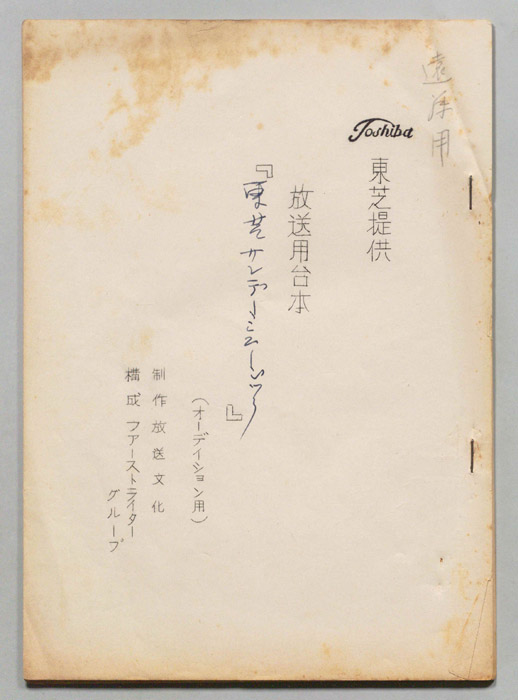 遠洋用
Toshiba
東芝提供
放送用台本
『東芝サンデーミュージック』
(オーデイション用)
制作放送文化
構成ファーストライター
グループ